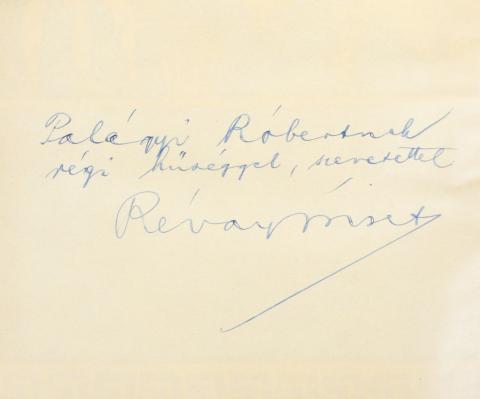 Palágyi Róbertnek
régi hűséggel, szeretettel
Révay József